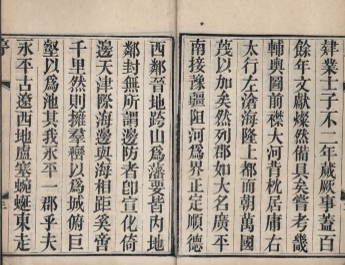 肄業士子不二年蕆厥事蓋百
餘年文獻燦然備具矣嘗考畿
輔輿圖前襟大河背枕居庸右
太行左滄海隆上都而朝萬國
蔑以加矣然列郡如大名廣平
南接豫疆阻河爲界正定順德
西鄰晉地跨山爲藩要皆內地
鄰封無所謂邊防者卽宣化倚
邊天津際海邊與海相距奚啻
千里然則擁羣巒以爲城俯巨
壑以爲池其我永平一郡乎夫
永平古遼西地盧塞蜿蜒東走